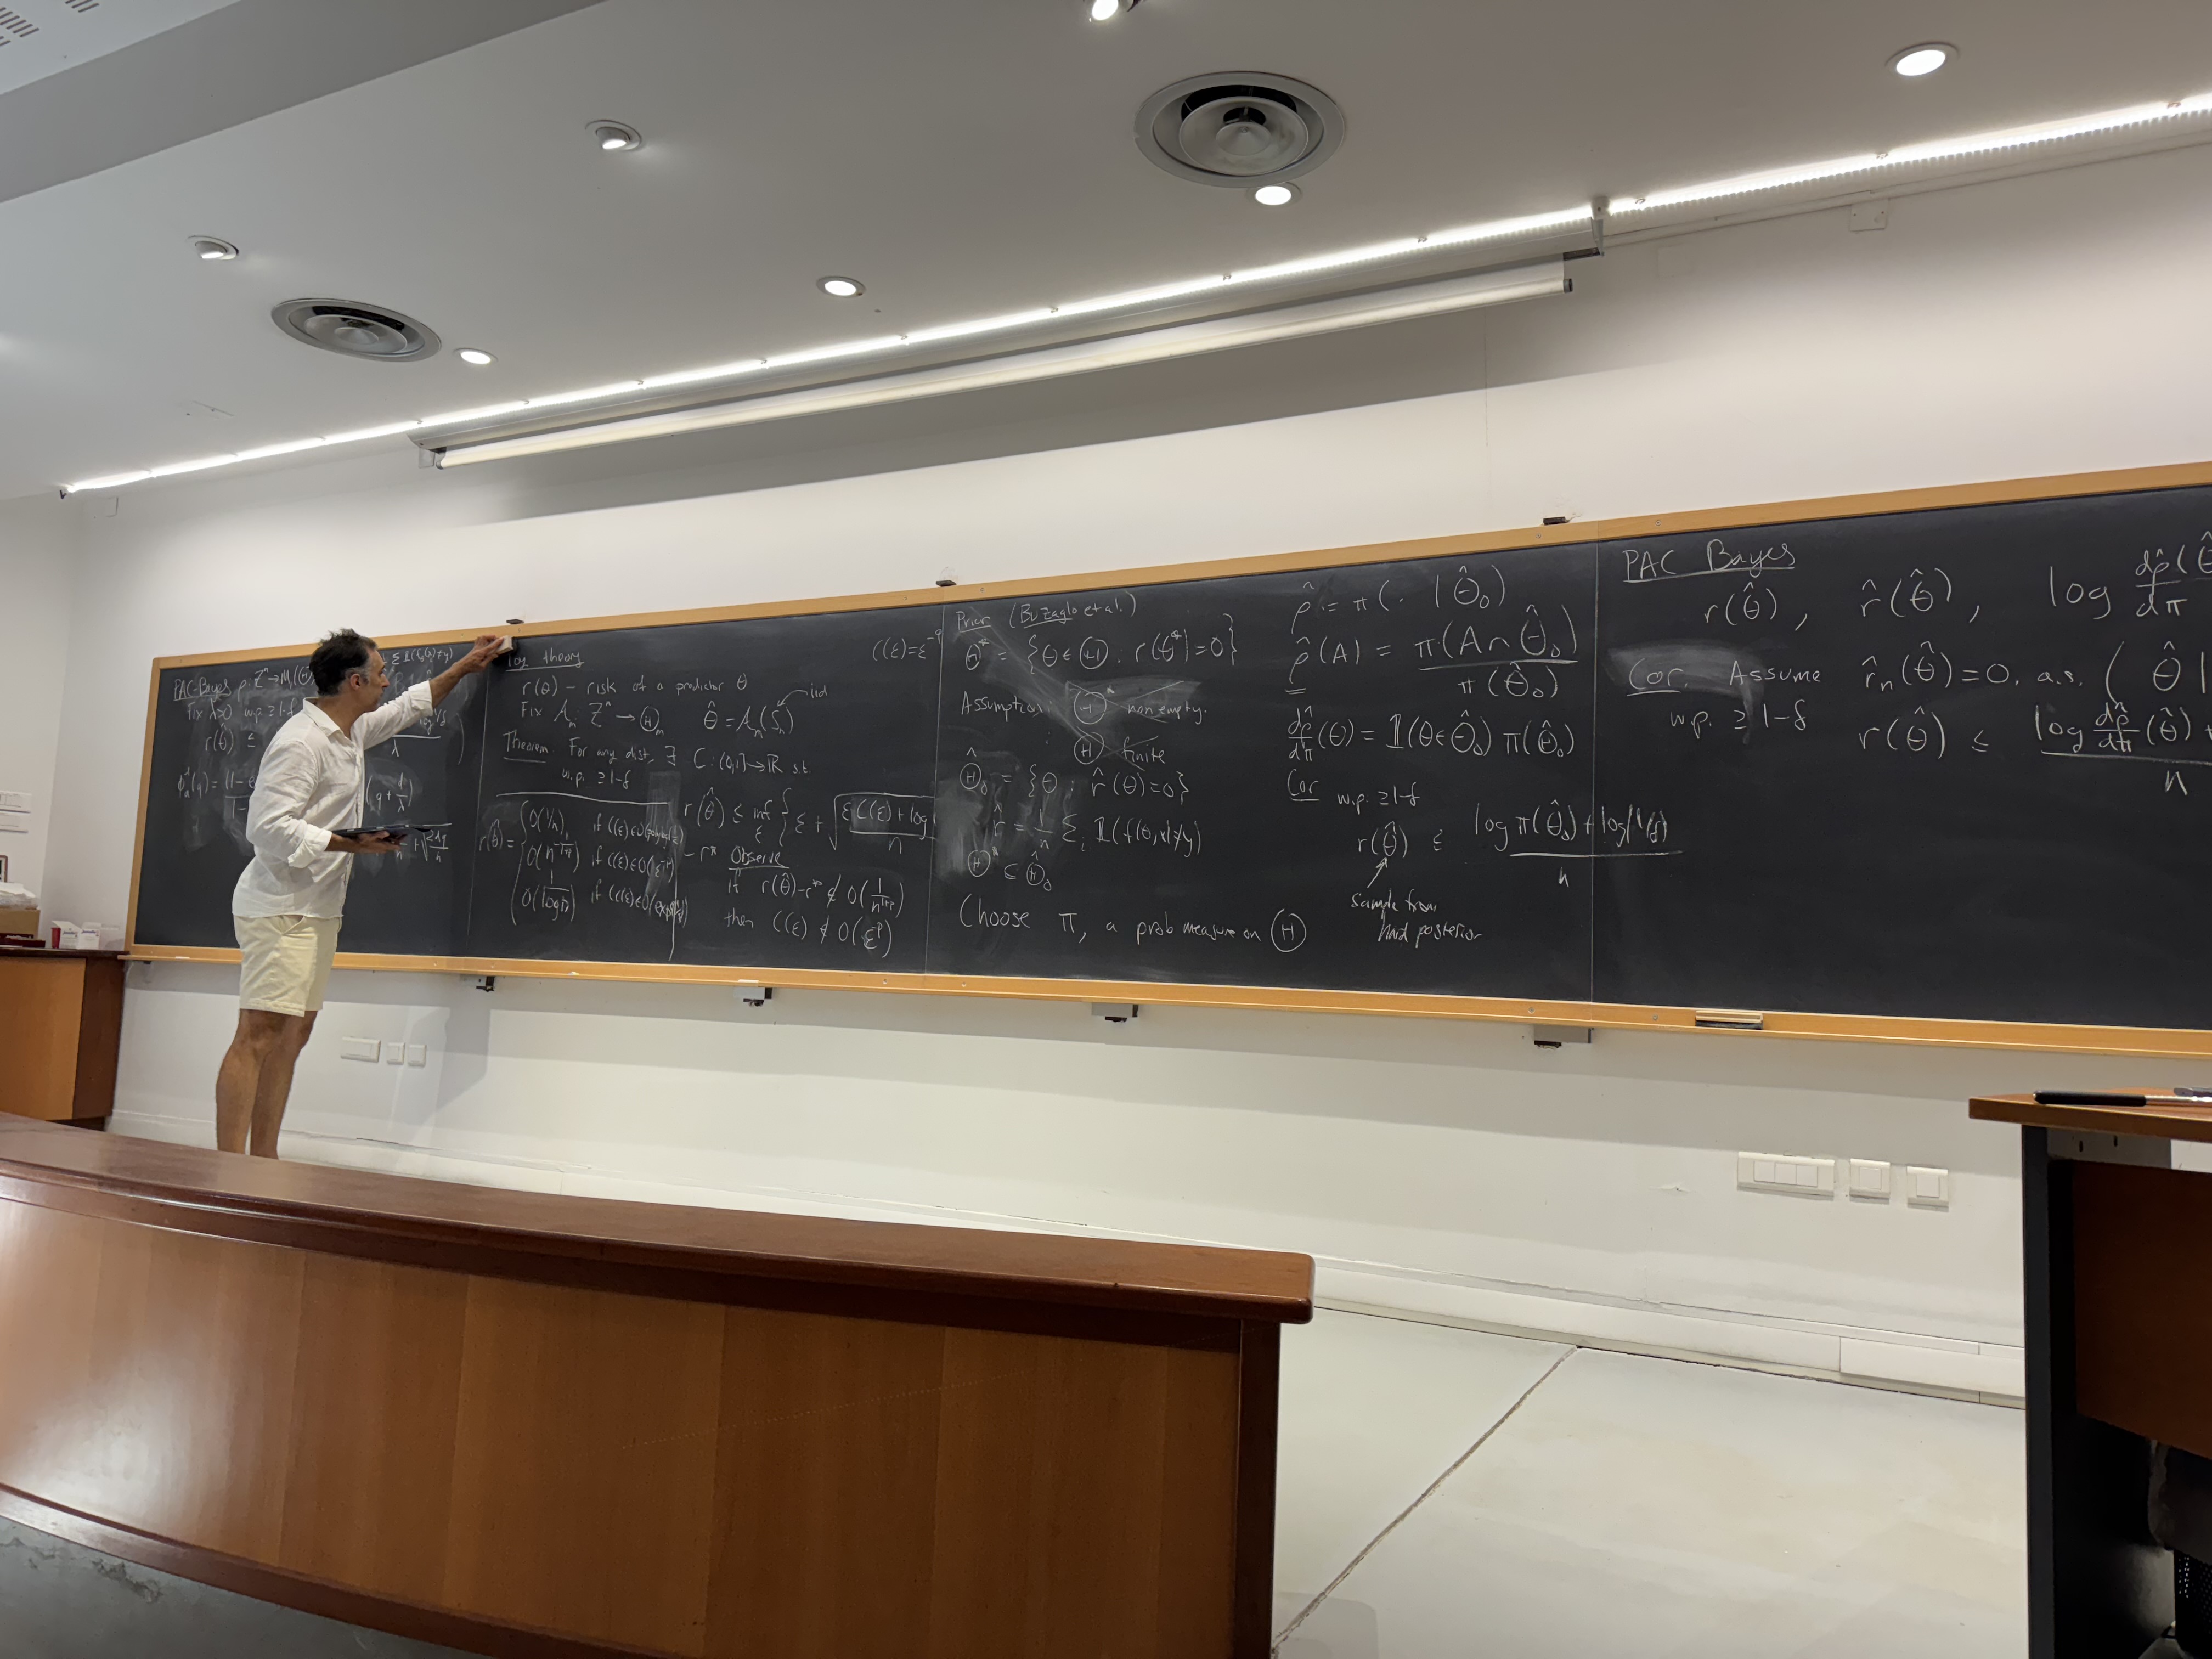 PAC-Bayes ρ: Zⁿ → M₁(Θ)
Σ 1(f_θ(x)≠y)
Fix λ>0 w.p. ≥ 1-δ
r(θ̂) ≤
Toy theory
r(θ) – risk of a predictor θ
iid
Fix A_m: Zⁿ → Θ_m θ̂ = A_m(S_n)
Theorem For any dist, ∃ C: (0,1] → ℝ s.t.
w.p. ≥ 1-δ
C(ε)=ε
r(θ̂) ≤ inf_ε { ε + √(ε C(ε) + log / n
r(θ̂) =
O(1/n) if C(ε)∈O(
if C(ε)∈O(
O(1/log n) if C(ε)∈O(
Observe
if r(θ̂) - r* ∉ O(
then C(ε) ∉ O(ε^-p)
Prior (Buzaglo et al.)
Θ* = {θ∈Θ : r(θ*)=0}
Assumption: Θ* nonempty.
: Θ finite
Θ̂₀ = {θ : r̂(θ)=0}
r̂ = 1/n Σᵢ 1(f(θ,x)≠y)
Θ* ⊆ Θ̂₀
Choose π, a prob measure on Θ
ρ̂ := π(· | Θ̂₀)
ρ̂(A) = π(A∩Θ̂₀) / π(Θ̂₀)
dρ̂/dπ (θ) = 1(θ∈Θ̂₀) π(Θ̂₀)
Cor w.p. ≥ 1-δ
r(θ̂) ≤ log π(Θ̂₀) + log(1/δ) / n
sample from
hard posterior
PAC Bayes
r(θ̂), r̂(θ̂), log dρ̂/dπ (θ̂
Cor. Assume r̂_n(θ̂)=0. a.s. (θ̂ |
w.p. ≥ 1-δ
r(θ̂) ≤ log dρ̂/dπ (θ̂) + / n